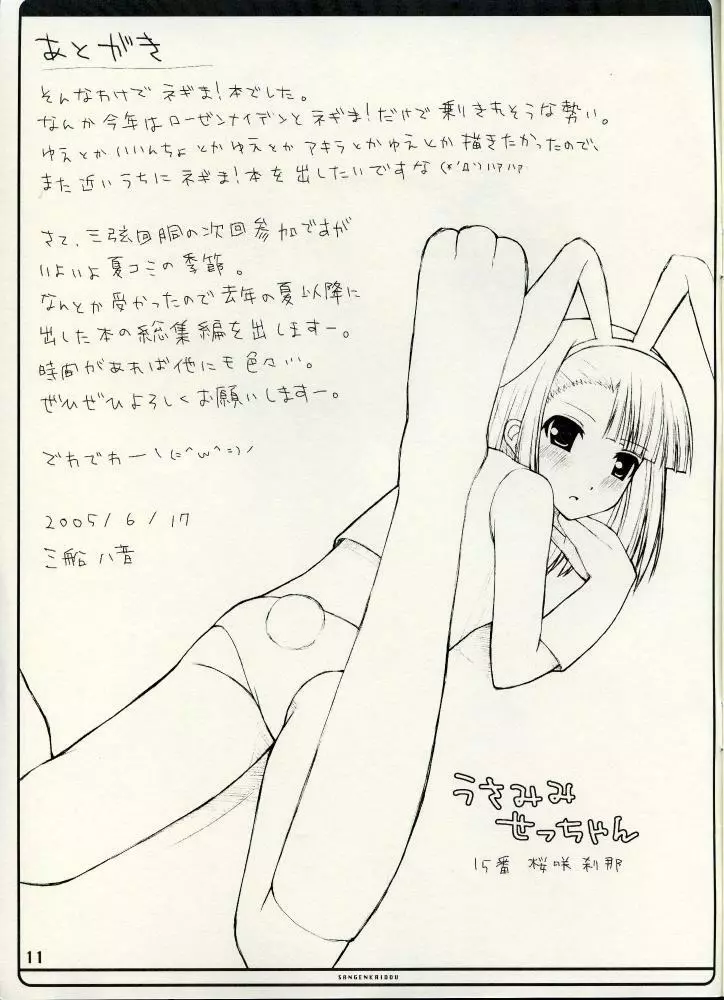 あとがき
そんなわけで ネギま！本でした。
なんか今年はローゼンメイデンとネギま！だけで乗りきれそうな勢い。
ゆえとかいいんちょとかゆえとかアキラとかゆえとか描きたかったので、
また近いうちにネギま！本を出したいですな(*´Д`)ハァハァ
さて、三弦回胴の次回参加ですが
いよいよ夏コミの季節。
なんとか受かったので去年の夏以降に
出した本の総集編を出しますー。
時間があれば他にも色々…。
ぜひぜひよろしくお願いしますー。
でわでわーヽ(=^ω^=)ノ
2005/6/17
三船八音
うさみみ
せっちゃん
15番 桜咲刹那
11
SANGENKAIDOU